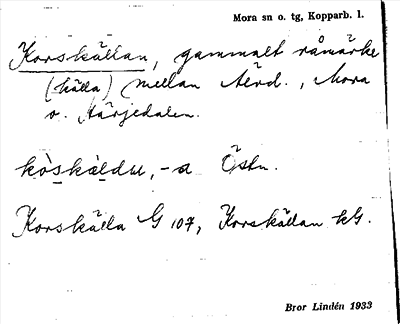 Mora sn o. tg, Kopparb. l.
Korskällan, gammalt råmärke
(källa) mellan Särd., Mora
o. Härjedalen.
kòskàldu, -a Östn.
Korskälla G 107, Korskällan kG.
Bror Lindén 1933